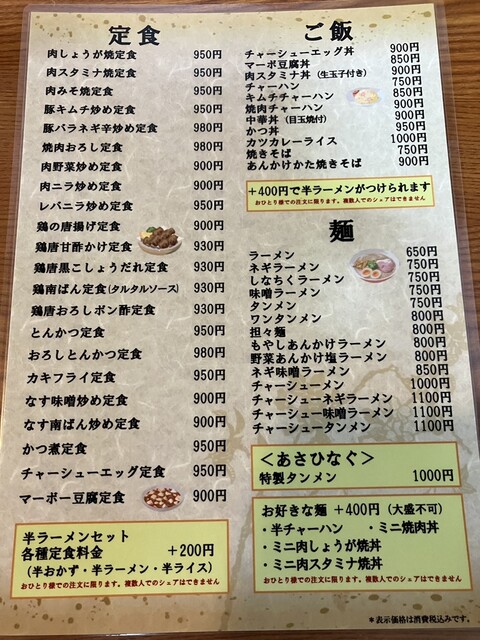 定食
肉しょうが焼定食 950円
肉スタミナ焼定食 950円
肉みそ焼定食 950円
豚キムチ炒め定食 950円
豚バラネギ辛炒め定食 980円
焼肉おろし定食 980円
肉野菜炒め定食 900円
肉ニラ炒め定食 900円
レバニラ炒め定食 950円
鶏の唐揚げ定食 900円
鶏唐甘酢かけ定食 930円
鶏唐黒こしょうだれ定食 930円
鶏南ばん定食(タルタルソース) 930円
鶏唐おろしポン酢定食 930円
とんかつ定食 950円
おろしとんかつ定食 980円
カキフライ定食 950円
なす味噌炒め定食 900円
なす南ばん炒め定食 900円
かつ煮定食 950円
チャーシューエッグ定食 950円
マーボー豆腐定食 900円
半ラーメンセット
各種定食料金 +200円
(半おかず・半ラーメン・半ライス)
おひとり様での注文に限ります。複数人でのシェアはできません
ご飯
チャーシューエッグ丼 900円
マーボ豆腐丼 850円
肉スタミナ丼(生玉子付き) 900円
チャーハン 750円
キムチチャーハン 850円
焼肉チャーハン 900円
中華丼(目玉焼付) 900円
かつ丼 950円
カツカレーライス 1000円
焼きそば 750円
あんかけかた焼きそば 900円
+400円で半ラーメンがつけられます
おひとり様での注文に限ります。複数人でのシェアはできません
麺
ラーメン 650円
ネギラーメン 750円
しなちくラーメン 750円
味噌ラーメン 750円
タンメン 750円
ワンタンメン 800円
担々麺 800円
もやしあんかけラーメン 800円
野菜あんかけ塩ラーメン 800円
ネギ味噌ラーメン 850円
チャーシューメン 1000円
チャーシューネギラーメン 1100円
チャーシュー味噌ラーメン 1100円
チャーシュータンメン 1100円
<あさひなぐ>
特製タンメン 1000円
お好きな麺 +400円(大盛不可)
・半チャーハン ・ミニ焼肉丼
・ミニ肉しょうが焼丼
・ミニ肉スタミナ焼丼
おひとり様での注文に限ります。複数人でのシェアはできません
*表示価格は消費税込みです。